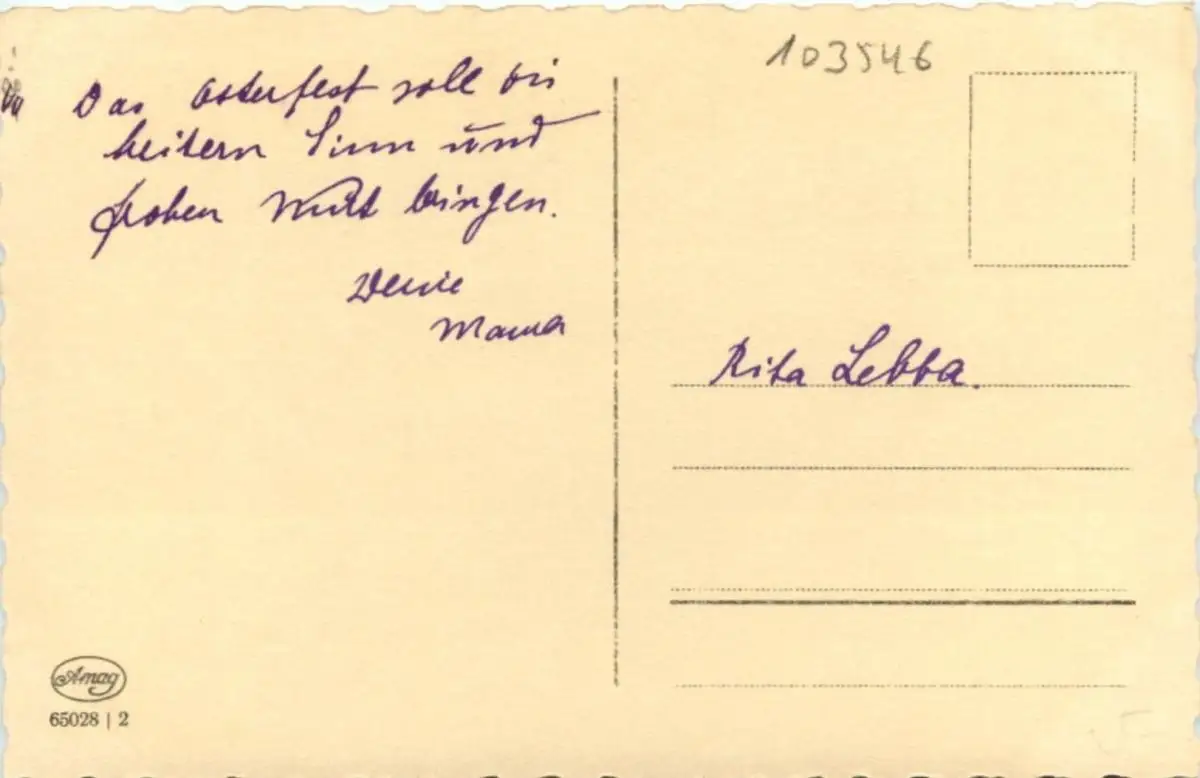 103546
Das Osterfest soll dir
heitern Sinn und
frohen Mut bringen.
Deine
Mama
Rita Lebba.
Amag
65028 | 2